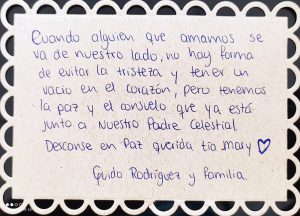 Cuando alguien que amamos se
va de nuestro lado, no hay forma
de evitar la tristeza y tener un
vacio en el corazón, pero tenemos
la paz y el consuelo que ya está
junto a Nuestro Padre Celestial
Descanse en Paz querida tía Mary
Guido Rodríguez y Familia